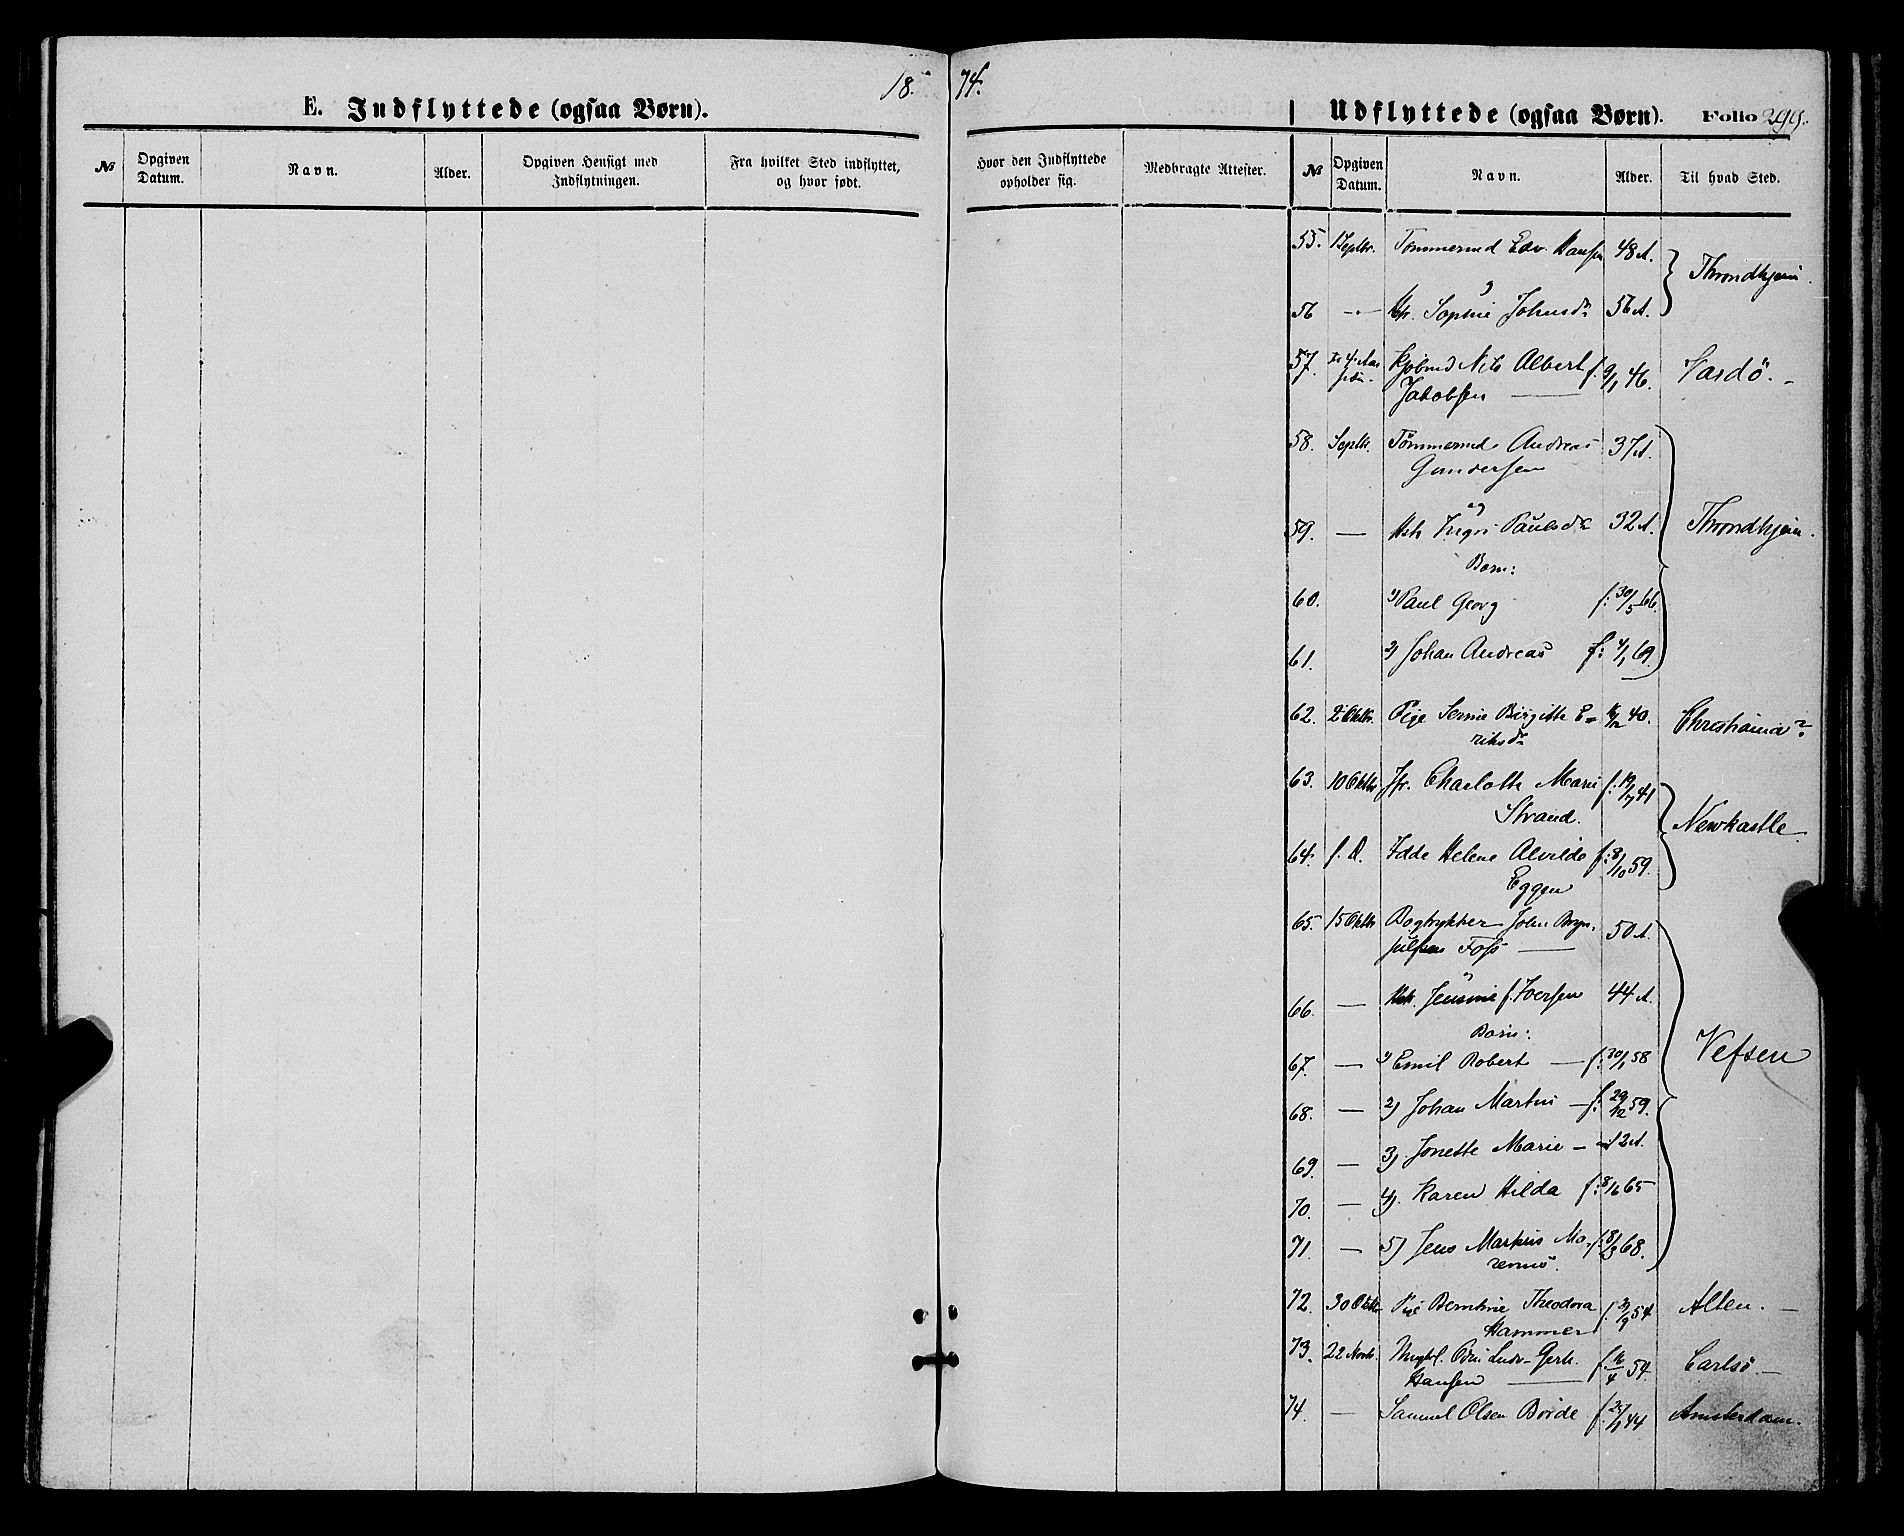 18 74.
E. Indflyttede (ogsaa Børn).
Udflyttede (ogsaa Børn). Folio 299.
№ Opgiven Datum. Navn. Alder. Opgiven Hensigt med Indflytningen. Fra hvilket Sted indflyttet, og hvor født. Hvor den Indflyttede opholder sig. Medbragte Attester. № Opgiven Datum. Navn. Alder. Til hvad Sted.
55. 1 Septbr. Tømmermd Edv. Hansen 48 A. Throndhjem.
56 Sophie Johnsdr 56 A.
57. Kjøbmd Nils Albert f. 9/1 46. Vardö.
Jakobsen
58. Septb. Tømmermd. Andreas 37 A.
Gundersen
Throndhjem.
59. — Paulsdr 32 A.
Børn:
60. 1) Paul Georg f: 30/5 66.
61. 2) Johan Andreas f: 4/1 69.
62. 2 Oktbr. Pige Birgitte E= 40. Christiania?
riksdr
63. 10 Oktbr Jfr. Charlotte Marie f. 19/7 41
Strand.
Newkastle
64. f. D. Helene Alvilde f: 8/10 59.
Eggen
65. 15 Oktbr Bogtrykker John Bryn= 50 A.
julfsen Foss
66. — Jensine f. Iversen 44 A.
Børn:
Vefsen
67. — 1) Emil Robert — f: 30/1 58
68. — 2) Johan Martin — f: 29/12 59.
69. — 3) Jonette Marie — 12 A.
70. — 4) Karen Hilda f: 8/6 65
71. — 5) Jens Markus Ma= f. 8/3 68.
72. 30 Oktbr Pige Berntine Theodora 54 Alten. —
Hammer
73. 22 Novb. Ludv. Gerh. 54. Carlsö. —
Hansen
74. — Samuel Olsen Börde 44 Amsterdam.